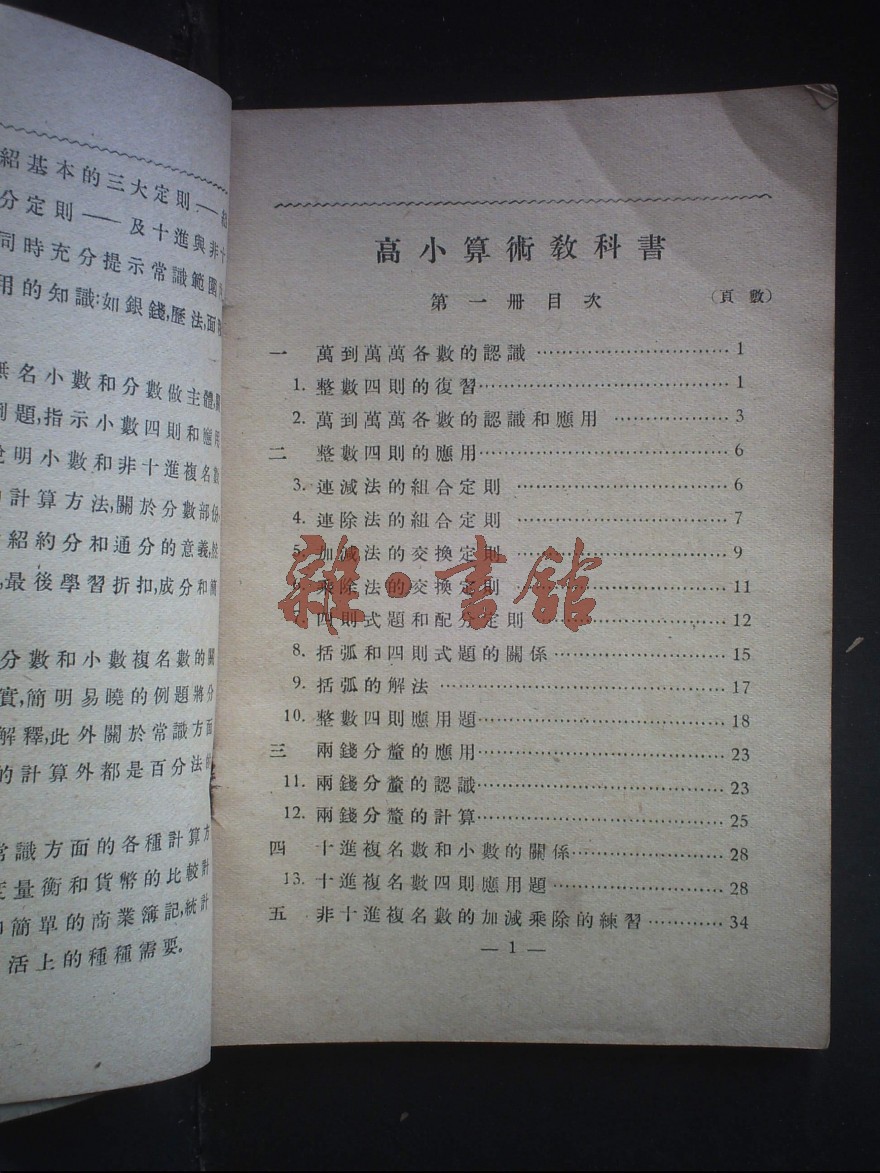 紹基本的三大定則——
分定則——及十進與非十
同時充分提示常識範圍
用的知識:如銀錢,歷法,面
無名小數和分數做主體,
例題,指示小數四則和應用
說明小數和非十進複名數
計算方法,關於分數部份
紹約分和通分的意義,然
,最後學習折扣,成分和簡
分數和小數複名數的關
實,簡明易曉的例題將分
解釋,此外關於常識方面
的計算外都是百分法的
常識方面的各種計算方
度量衡和貨幣的比較計
簡單的商業簿記,統計
活上的種種需要。
高小算術教科書
第一冊目次 (頁數)
一 萬到萬萬各數的認識……………………………1
1. 整數四則的復習……………………………………1
2. 萬到萬萬各數的認識和應用 …………………3
二 整數四則的應用……………………………………6
3. 連減法的組合定則 ………………………………6
4. 連除法的組合定則 ………………………………7
5. 加減法的交換定則 ………………………………9
6. 乘除法的交換定則 ………………………………11
7. 四則式題和配分定則 ……………………………12
8. 括弧和四則式題的關係…………………………15
9. 括弧的解法…………………………………………17
10. 整數四則應用題……………………………………18
三 兩錢分釐的應用……………………………………23
11. 兩錢分釐的認識……………………………………23
12. 兩錢分釐的計算……………………………………25
四 十進複名數和小數的關係………………………28
13. 十進複名數四則應用題…………………………28
五 非十進複名數的加減乘除的練習…………34
— 1 —
雜·書館